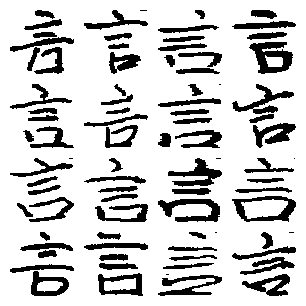 言言言言
言言言言
言言言言
言言言言